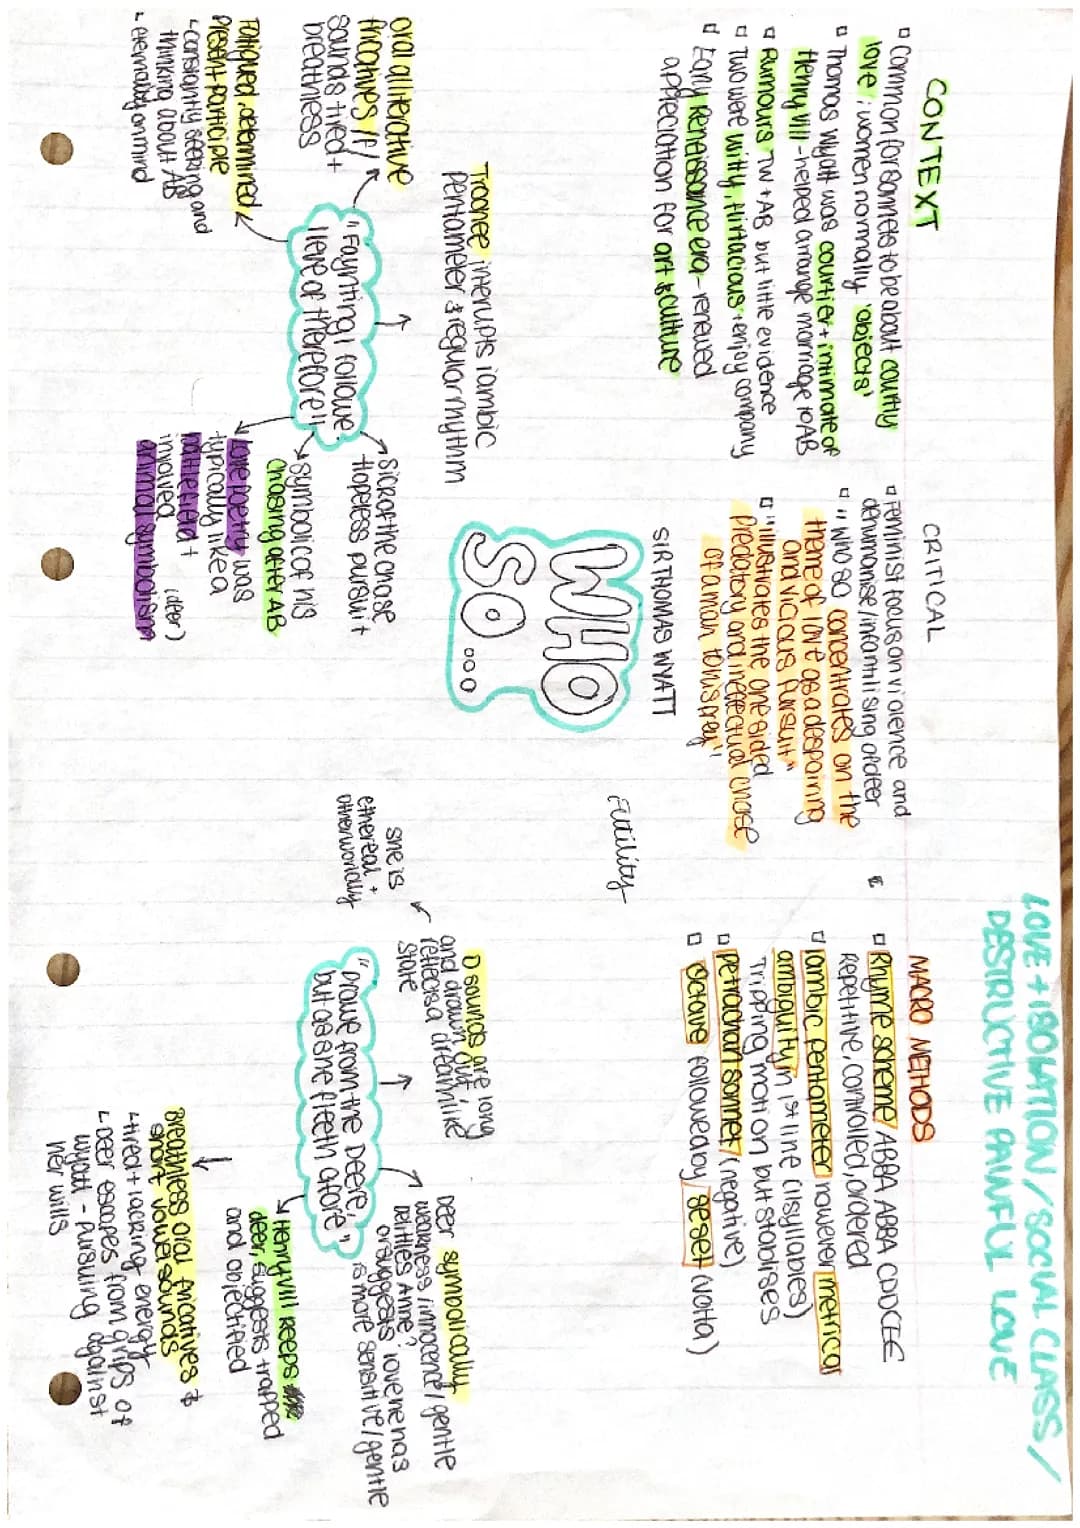 LOVE + ISOLATION / SOCIAL CLASS /
DESTRUCTIVE PAINFUL LOVE
CONTEXT
Common for sonnets to be about courtly
love; women normally 'objects'
Thomas Wyatt was courtier + intimate of
Henry VIII - helped arrange marriage to AB
Rumours TW + AB but little evidence
Two were witty, flirtacious + enjoy company
Early Reneissance era - renewed
appreciation for art & culture
CRITICAL
Feminist focus on violence and
dehumanise infantilising of deer
"Whoso concentrates on the
theme of love as a despairing
and vicious pursuit"
"illustrates the one sided
predatory and ineffectual chase
of a man to his prey"
MACRO METHODS
Rhyme scheme / ABBA ABBA CDDCEE
Repetitive, controlled, ordered
Iambic pentameter however metrical
ambiguity in 1st line (11 syllables)
Tripping motion but stablises
petrachan sonnet / (negative)
Octave followed by / seset (volta)
SIR THOMAS WYATT
WHO
SO ...
Futility
Trochee interupts iambic
pentameter & regular rhythm
"Faynting I followe
I leve of therefore"
oral alliterative
fricatives /f/
sounds tired +
breathless
Fatigued, determined
present participle
constantly seeking and
thinking about AB
eternally on mind
Sick of the chase
hopeless pursuit
symbolic of his
chasing after AB
Love poetry was
typically like a
battlefield +
involved (deer)
animal symbolism
D sounds are long
and drawn out,
reflects a dreamlike
state
she is
ethereal +
otherworldly
"Drawe from the Deere,
but as she fleeth afore"
Deer symbolically
weakness / innocence / gentle
belittles Anne?
or suggests love he has
is more sensitive / gentle
Henry VIII keeps
deer, suggests trapped
and objectified
Breathless oral fricatives &
short vowel sounds
tired + lacking energy
Deer escapes from grips of
Wyatt - pursuing against
her wills